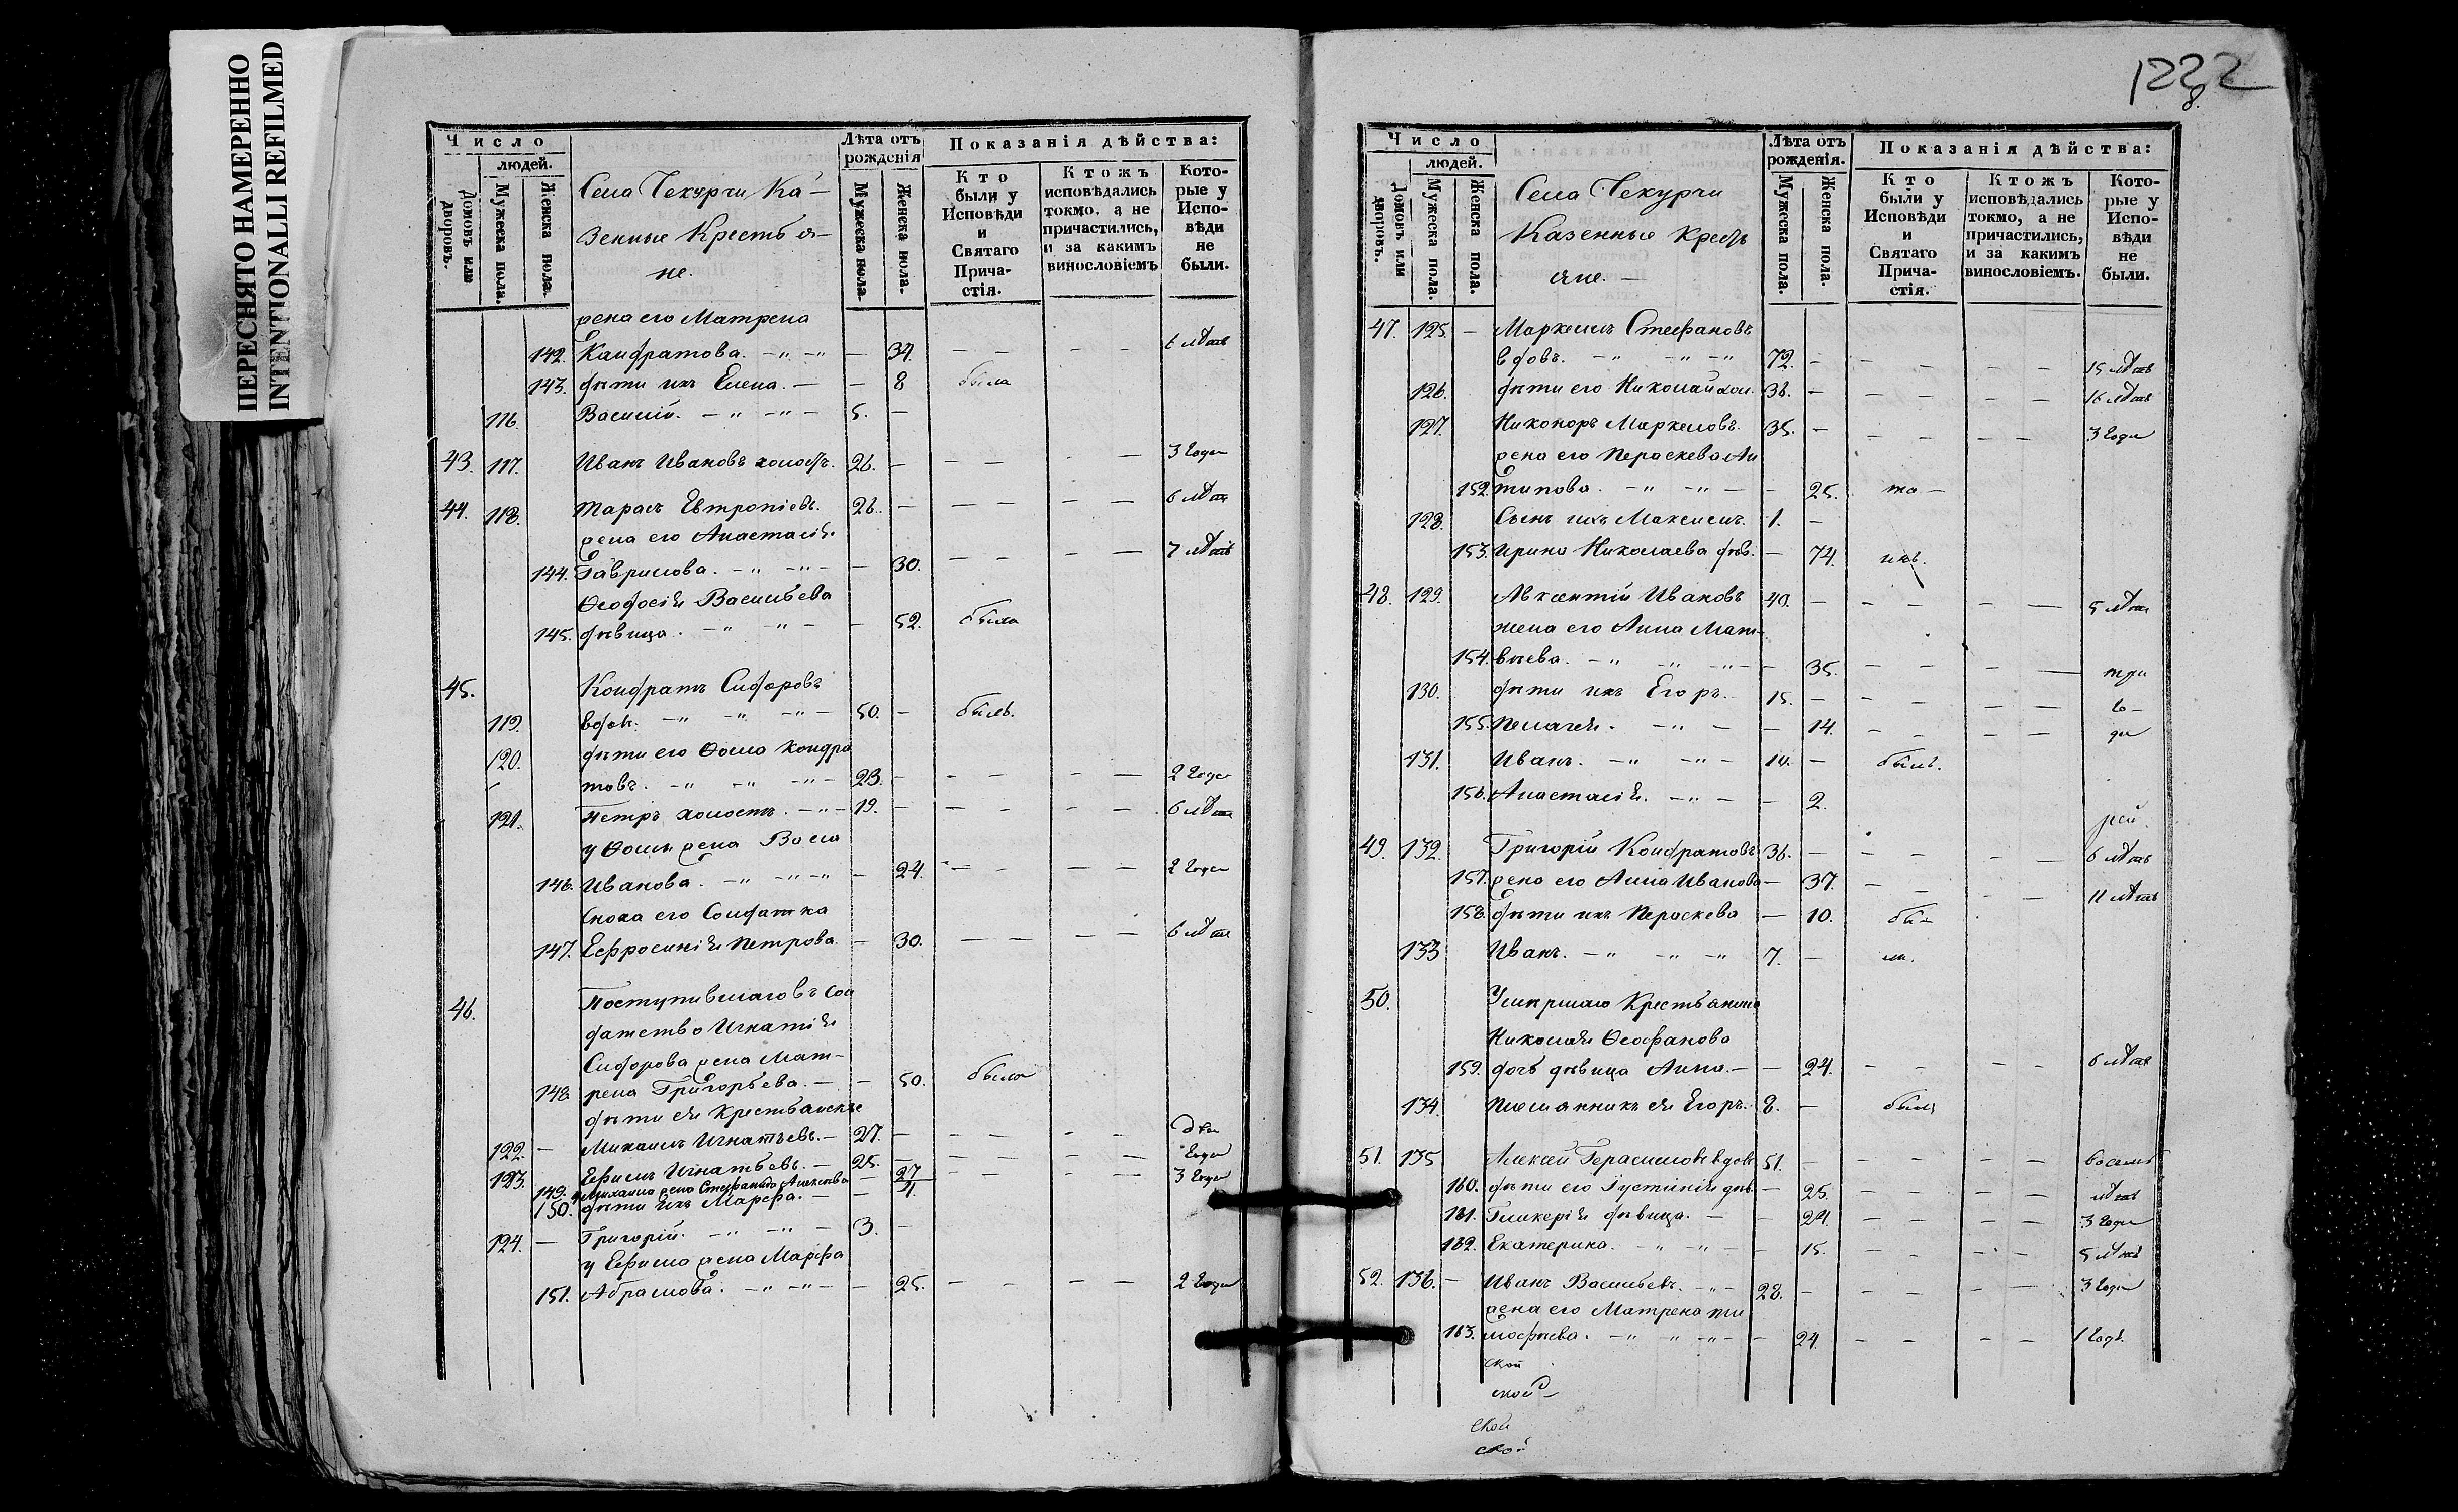 ПЕРЕСНЯТО НАМЕРЕННО
INTENTIONALLI REFILMED
Число
людей.
Домовъ или дворовъ.
Мужеска пола.
Женска пола.
Села Чекурчи Ка-
зенные Крестья-
не.
Лѣта отъ рожденія
Мужеска пола.
Женска пола.
Показанія дѣйства:
Кто были у Исповѣди и Святаго Прича-стія.
Ктожъ исповѣдались токмо, а не причастились, и за какимъ винословіемъ
Кото-рые у Испо-вѣди не были.
жена его Матрена
142. Кандратова. — „ — „ — 34. — — — — 6 лѣтъ
143. дѣти ихъ Елена. — — 8 была
116. Василій. — „ — „ — 5. —
43. 117. Иванъ Ивановъ холостъ. 26. — — — — 3 года
44. 118. Тарасъ Евтропіевъ. 26. — — — — — 6 лѣтъ
жена его Анастасія
144. Гаврилова. — „ — „ — — 30. — — — — 7 лѣтъ
Ѳеодосія Васильева
145. дѣвица. — „ — „ — — 52. была
45. Кондратъ Сидоровъ
119. вдов. — „ — „ — „ — 50. — былъ.
120. дѣти его Ѳома Кондра
товъ. — „ — „ — „ — 23. — — — — — 2 года
121. Петръ холостъ. — „ — 19. — — — — — 6 лѣтъ
у Ѳомы жена Васса
146. Иванова. — „ — „ — „ — 24. — — — — 2 года
Сноха его Солдатка
147. Ефросинія Петрова. — 30. — — — — 6 лѣтъ
46. Поступившаго въ сол
датство Игнатія
Сидорова жена Мат-
148. рена Григорьева. — — 50. была
дѣти ея Крестьянскіе
122. — Михаилъ Игнатьевъ. — 27. — — — — — два
123. Ефимъ Игнатьевъ. — 25. — — — — — года
149. у Михаила жена Стефанида Алексѣева — 27 — — — — 3 года
150. дѣти ихъ Марфа. — — 4.
124. — Григорій. — „ — „ — 3. —
у Ефима жена Марфа
151. Абрамова. — „ — „ — — 25. — — — — 2 года
1232
Число
людей.
Домовъ или дворовъ.
Мужеска пола.
Женска пола.
Села Чекурчи
Казенные Кресть
яне. —
Лѣта отъ рожденія.
Мужеска пола.
Женска пола.
Показанія дѣйства:
Кто были у Исповѣди и Святаго Прича-стія.
Ктожъ исповѣдались токмо, а не причастились, и за какимъ винословіемъ.
Кото-рые у Испо-вѣди не были.
47. 125. — Маркеллъ Стефановъ
вдовъ. — „ — „ — „ 72. — — — — — 15 лѣтъ
126. дѣти его Николай хол. 38. — — — — — 16 лѣтъ
127. Никоноръ Маркеловъ. 35. — — — — — 3 года
жена его Пераскева Ан
152. типова. — „ — „ — — 25. та —
128. Сынъ ихъ Максимъ. 1. —
153. Ирина Николаева дѣв. — 74. икъ.
48. 129. Авксентій Ивановъ 40. — — — — — 5 лѣтъ
жена его Анна Мат-
154. вѣева. — „ — „ — „ — — 35. — — — — три
130. дѣти ихъ Егоръ. 15. — — — — — го —
155. Пелагея. — „ — — 14. — — — — да
131. Иванъ. — „ — „ — 10. — былъ.
156. Анастасія. — „ — — 2.
49. 132. Григорій Кондратовъ 36. — — — — — 6 лѣтъ
157. жена его Анна Иванова — 37. — — — — 11 лѣтъ
158. дѣти ихъ Пераскева — 10. бы-
133 Иванъ. — „ — „ — „ 7. — ли.
50. Умершаго Крестьянина
Николая Ѳеофанова
159. дочь дѣвица Анна. — — 24. — — — — 6 лѣтъ
134. племянникъ ея Егоръ. 8. — былъ
51. 135 Алексей Герасимовъ вдов 51. — — — — — восемь
160. дѣти его Густинія дѣв. — 25. — — — — лѣтъ
161. Гликерія дѣвица. — — 24. — — — — 3 года
162. Екатерина. — „ — „ — — 15. — — — — 5 лѣтъ
52. 136. — Иванъ Васильевъ. — „ — 28. — — — — — 3 года
жена его Матрена Ти
163. моѳѣева. — „ — „ — „ — — 24. — — — — 1 годъ.
ской
ской
ской